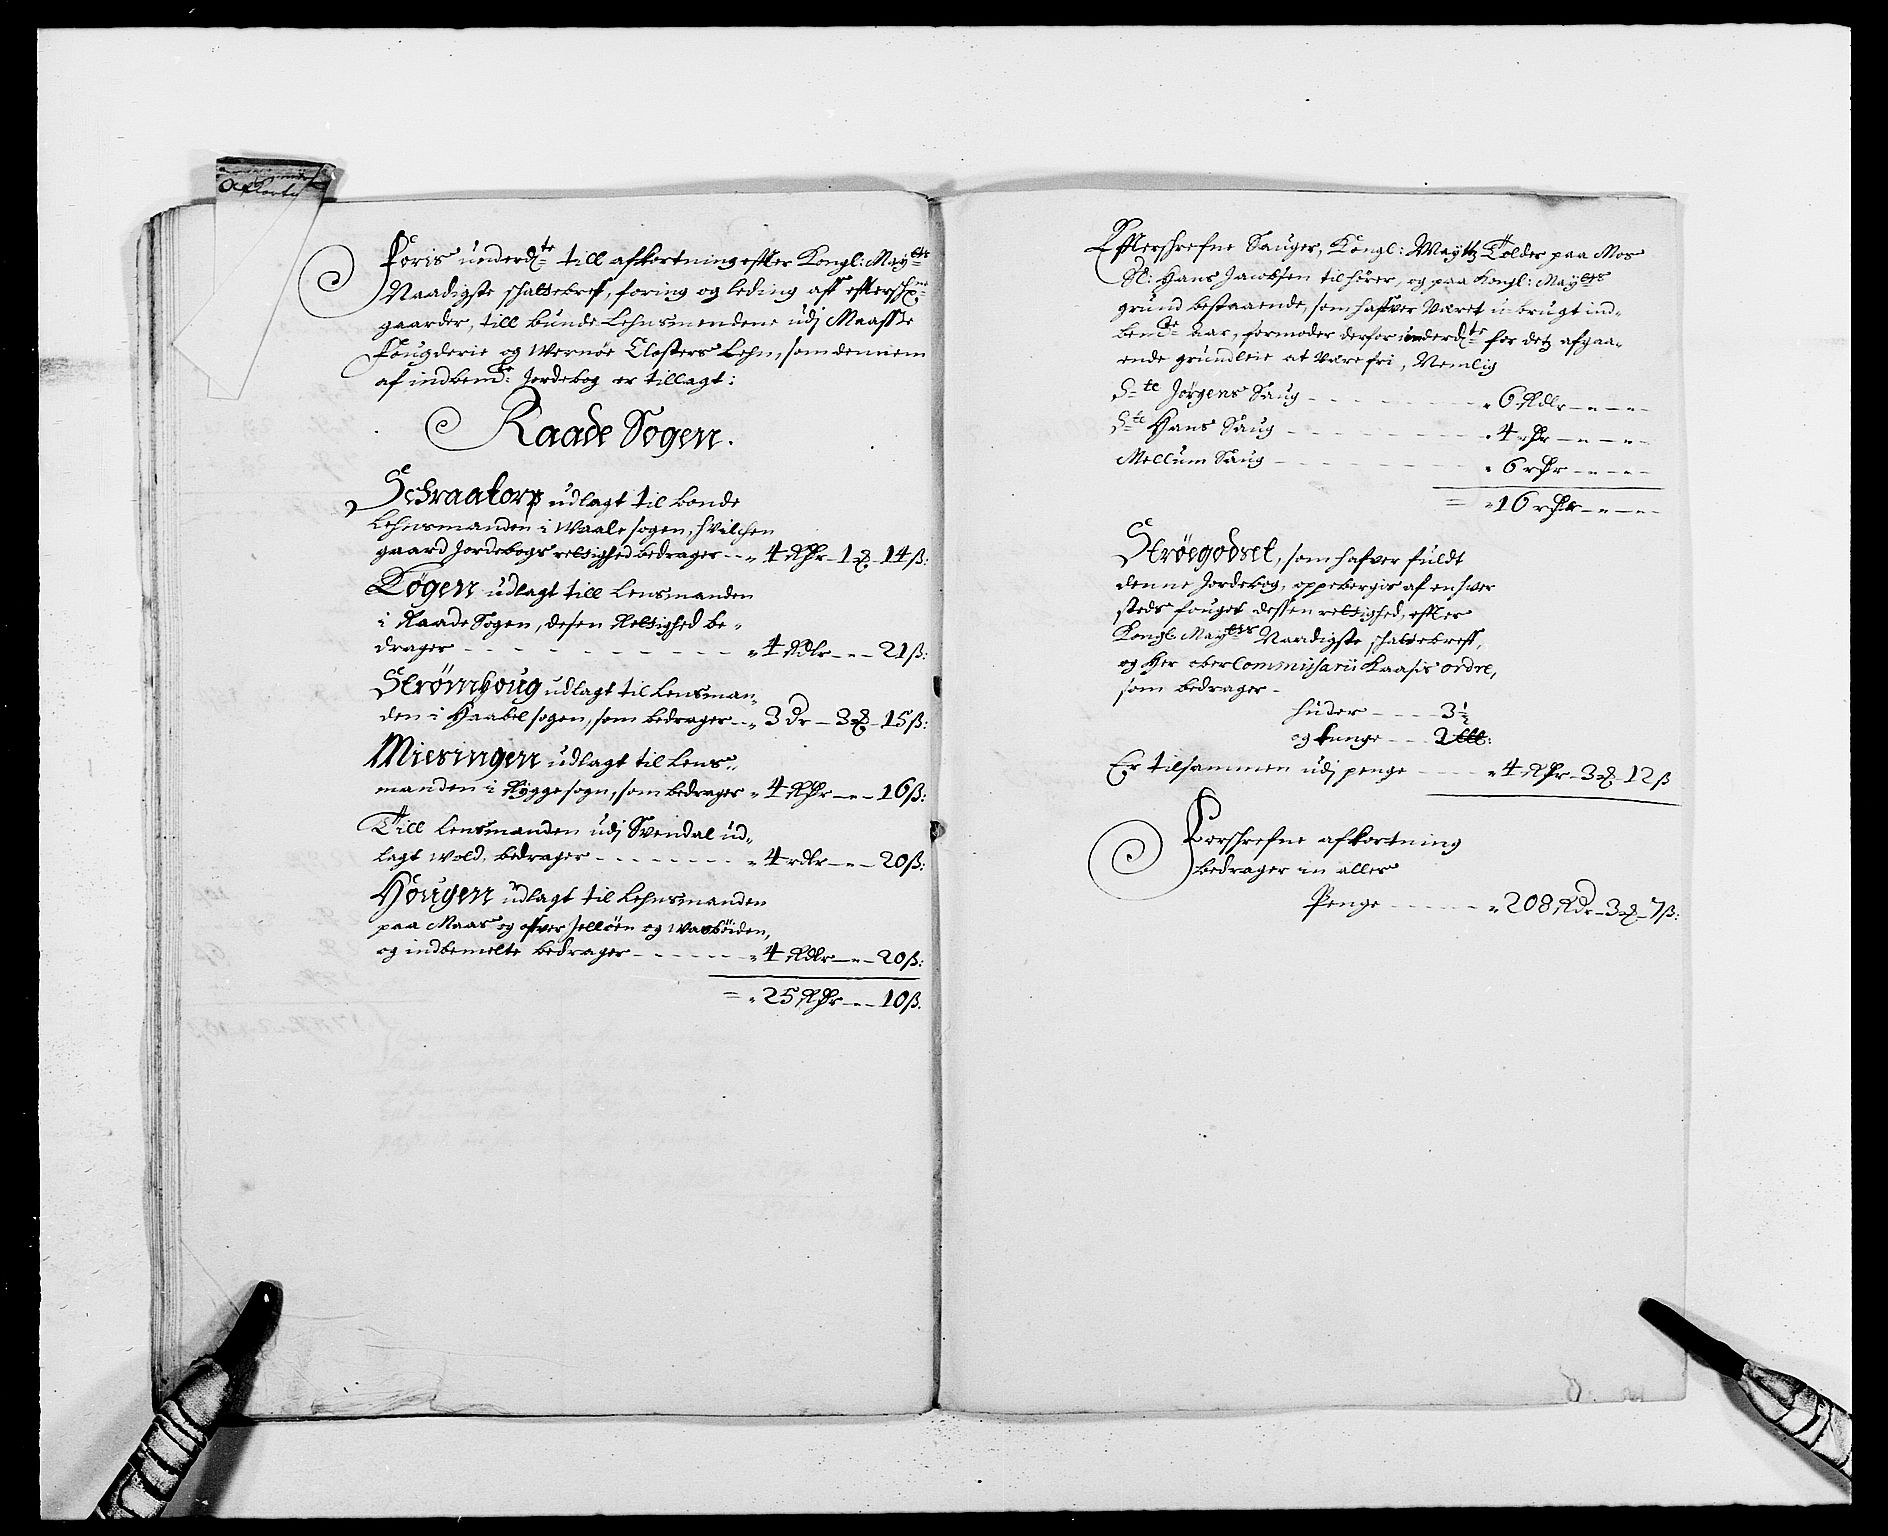 Afkorte
Foris underd:te till afkortning efter Kongl: May:ets
Naadigste schattebref, foring og leding aff efterschr:ne
gaarder, till bunde Lehnsmendene udj Maasse
Fougderie og Wernøe Closters Lehn, som dennem
af indbem:te Jordebog er tillagt:
Raade Sogen.
Schraatorp udlagt til bonde
Lehnsmanden i Waale sogen, hvilchen
gaard Jordebogs rettighed bedrager - - „ 4 Rdr - 1 ₰ - 14 ß:
Tøgen udlagt till Lensmanden
i Raade Sogen, desen Rettighed be-
drager - - - „ 4 Rdlr - „ - 21 ß:
Strømhoug udlagt til Lensman-
den i Haabel sogen, som bedrager - - „ 3 Dr - 3 ₰ - 15 ß:
Miesingen udlagt til Lens-
manden i Rygge sogn, som bedrager „ 4 Rdr - „ - 16 ß:
Till Lensmanden udj Svendal ud-
lagt Wold, bedrager - - - „ 4 rdlr - „ - 20 ß:
Hougen udlagt til Lehnsmanden
paa Maas og ofver Jelløen og
og indbemelte bedrager - - - „ 4 Rdlr - „ - 20 ß:
= „ 25 Rdr - „ - 10 ß.
Efterschrefne Sauger, Kongl: Maytz Tolder paa Mos
Sl: Hans Jacobsen tilhører, og paa Kongl: May:ets
grund bestaaende, som hafver Været u-brugt ind-
bem:te aar, formoder derfor underd:te for detz afgaa-
ende grundleie at være fri, Nemlig
S:te Jørgens Saug - - - „ 6 Rdlr - „ - „ -
S:te Hans Saug - - - „ 4 rdr - „ - „ -
Mellum Saug - - - „ 6 rdr - „ - „ -
= „ 16 rdr - „ - „ -
Strøegodset, som hafver fuldt
denne Jordebog, oppebergis af enhver
steds fouget dessen rettighed, efter
Kongl: May:ets Naadigste schattebreff,
og Her ober Commissarii Kaasis ordre,
som bedrager -
huder - - - 3½
og -
Er tilsammen udj penge - - - „ 4 Rdr - 3 ₰ 12 ß
Forschrefne afkortning
bedrager in alles
Penge - - - „ 208 Rdr - 3 ₰ - 7 ß: